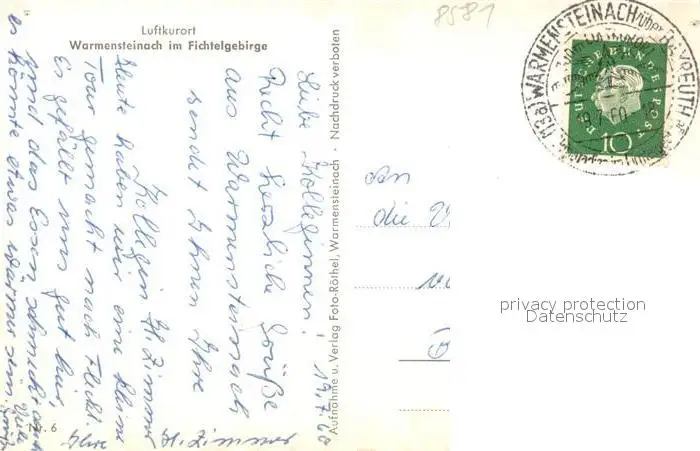 8581
Luftkurort
Warmensteinach im Fichtelgebirge
Liebe Kolleginnen! 19.7.60
Recht herzliche Grüße
aus Warmensteinach
sendet Ihnen Ihre
Kollegin H. Zimmer
Heute haben wir eine kleine
Tour gemacht nach Fleckl.
Es gefällt uns gut hier,
und das Essen schmeckt auch
es könnte etwas wärmer sein.
Viele
Ihre H. Zimmer
Nr. 6
Aufnahme u. Verlag Foto-Röthel, Warmensteinach - Nachdruck verboten
(13a) WARMENSTEINACH über BAYREUTH
19.7.60
DEUTSCHE BUNDESPOST
10
An
die
privacy protection
Datenschutz